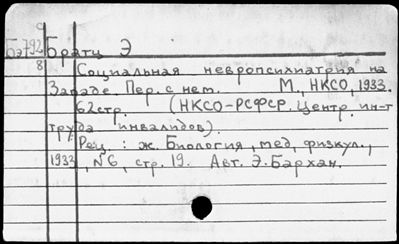 9
Бэ792 Братц Э
8 Социальная невропсихиатрия на
Западе. Пер. с нем. М., НКСО, 1933.
62стр. (НКСО-РСФСР. Центр. ин-т
труда инвалидов).
Рец. : ж. Биология, мед, физкул.,
1933, №6, стр. 19. Авт. Э. Бархан.